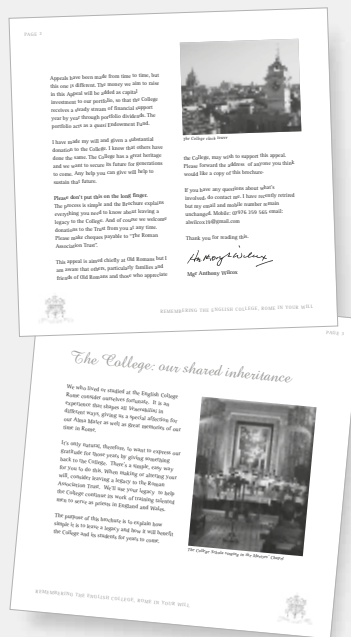 PAGE 7
Appeals have been made from time to time, but
this one is different. The money we aim to raise
in this Appeal will be added as capital
investment to our portfolio, so that the College
receives a steady stream of financial support
year by year through portfolio dividends. The
portfolio acts as a quasi Endowment Fund.
I have made my will and given a substantial
donation to the College. I know that others have
done the same. The College has a great heritage
and we want to secure its future for generations
to come. Any help you can give will help to
sustain that future.
Please don't put this on the long finger.
The process is simple and the Brochure explains
everything you need to know about leaving a
legacy to the College. And of course we welcome
donations to the Trust from you at any time.
Please make cheques payable to "The Roman
Association Trust".
This appeal is aimed chiefly at Old Romans but I
am aware that others, particularly families and
friends of Old Romans and those who appreciate
The College clock tower
the College, may wish to support this appeal.
Please forward the address of anyone you think
would like a copy of this brochure.
If you have any questions about what's
involved, do contact me. I have recently retired
but my email and mobile number remain
unchanged. Mobile: email:
Thank you for reading this.
Anthony Wilcox
Mgr Anthony Wilcox
REMEMBERING THE ENGLISH COLLEGE, ROME IN YOUR WILL
PAGE
The College: our shared inheritance
We who lived or studied at the English College
Rome consider ourselves fortunate. It is an
experience that shapes all Venerabilini in
different ways, giving us a special affection for
our Alma Mater as well as great memories of our
time in Rome.
It's only natural, therefore, to want to express our
gratitude for those years by giving something
back to the College. There's a simple, easy way
for you to do this. When making or altering your
will, consider leaving a legacy to the Roman
Association Trust. We'll use your legacy to help
the College continue its work of training talented
men to serve as priests in England and Wales.
The purpose of this brochure is to explain how
simple it is to leave a legacy and how it will benefit
the College and its students for years to come.
The College Schola singing in the Martyrs' Chapel
REMEMBERING THE ENGLISH COLLEGE, ROME IN YOUR WILL